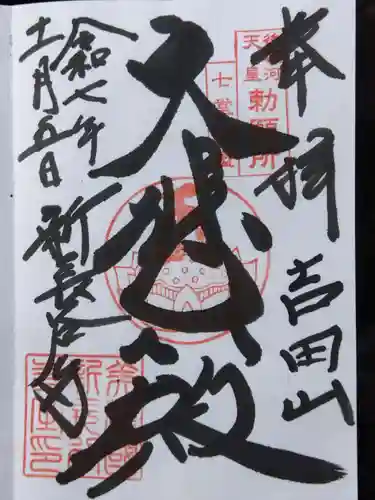 奉拝
吉田山
後堀河
天皇
勅願所
七堂伽藍
大悲殿
令和七年
十一月五日
新長谷寺